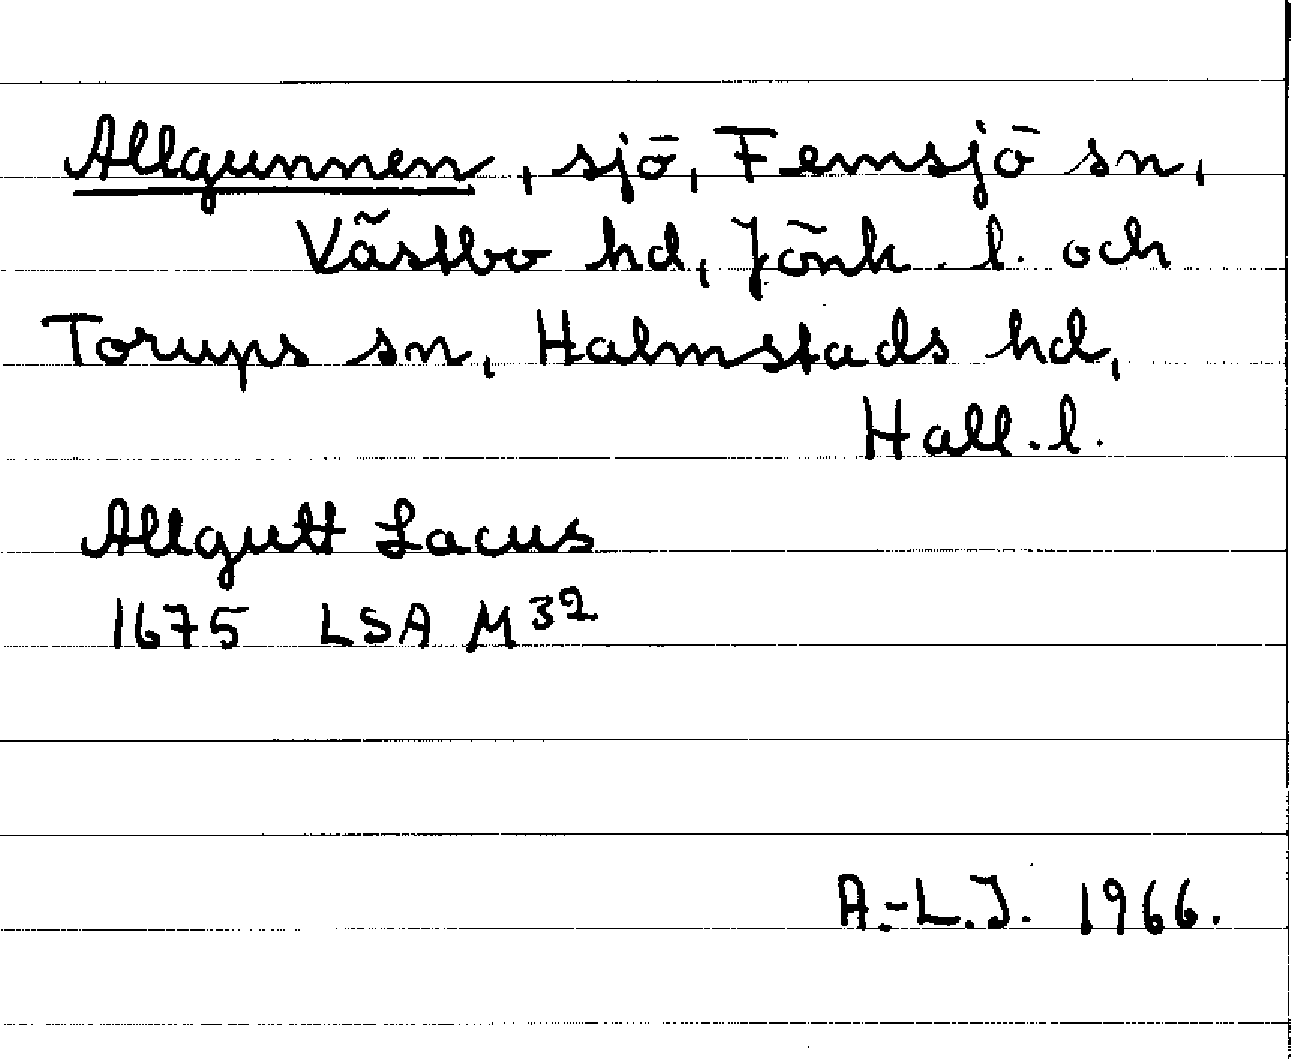 Allgunnen, sjö, Femsjö sn,
Västbo hd, Jönk. l. och
Torups sn, Halmstads hd,
Hall. l.
Allgutt Lacus
1675 LSA M³²
A.-L.J. 1966.